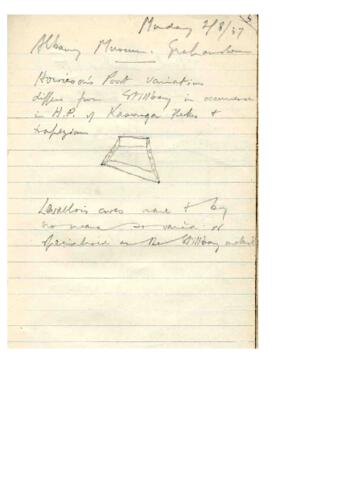 Monday 2/8/37
Albany Museum. Grahamstown
Howieson's Poort variation
differs from Stillbay in occurrence
in H.P. of Kasouga flakes &
trapezium
Levallois cores rare & by
no means so varied or
specialised as the Stillbay